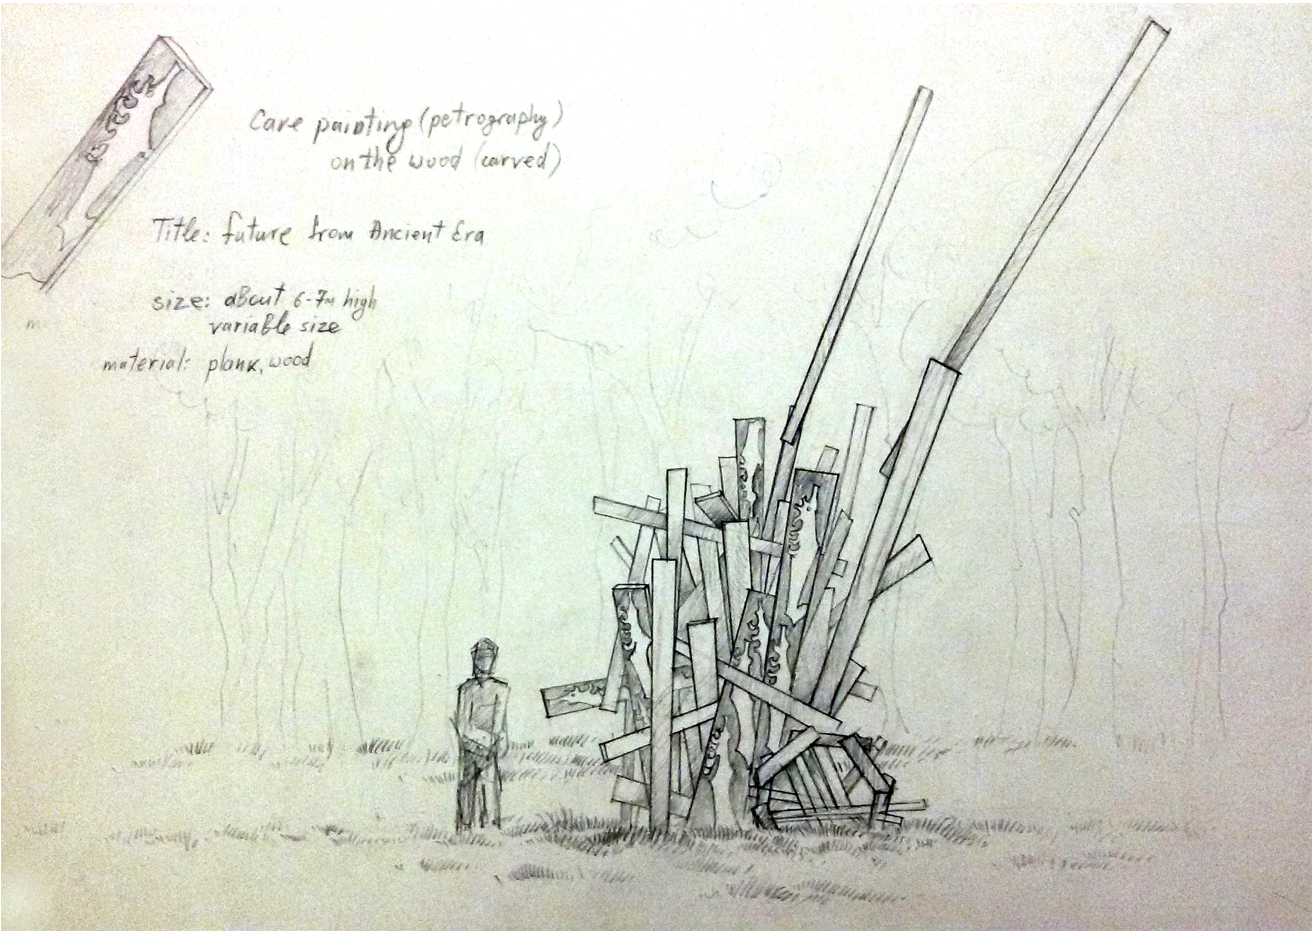 Cave painting (petrography)
on the wood (carved)
Title: Future from Ancient Era
size: aBout 6-7m high
variaBle size
material: plank, wood